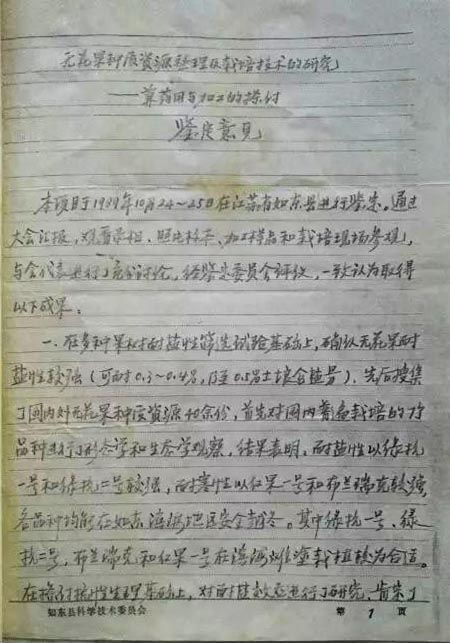 无花果种质资源整理及栽培技术的研究
——兼药用与加工的探讨
鉴定意见
本项目于1989年10月24~25日在江苏省如东县进行鉴定。通过
大会汇报,观看录相、照片标本、加工样品和栽培现场参观,
与会代表进行了充分讨论,经鉴定委员会评议,一致认为取得
以下成果:
一、在多种果树耐盐性筛选试验基础上,确认无花果耐
盐性较强(可耐0.3~0.4%,乃至0.5%土壤含盐量)。先后搜集
了国内外无花果种质资源40余份,首先对国内普遍栽培的
品种进行了形态学和生态学观察,结果表明,耐盐性以绿抗
一号和绿抗二号较强,耐寒性以红果一号和布兰瑞克较强,
各品种均能在如东海涂地区安全越冬。其中绿抗一号、绿
抗二号,布兰瑞克和红果一号在海涂滩涂栽植较为合适。
在抗性生理基础上,对耐盐效应进行了研究,肯定了
如东县科学技术委员会 第 1 页